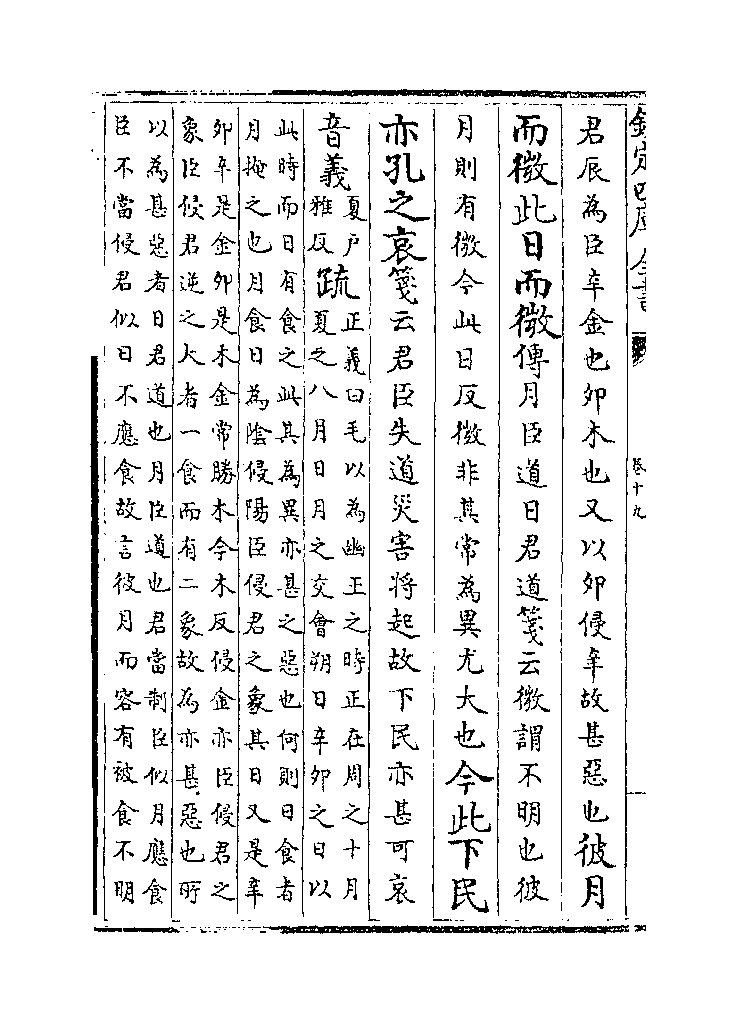 欽定四庫全書
卷十九
君辰為臣辛金也卯木也又以卯侵辛故甚惡也彼月
而微此日而微傳月臣道日君道箋云微謂不明也彼
月則有微今此日反微非其常為異尤大也今此下民
亦孔之哀箋云君臣失道災害將起故下民亦甚可哀
音義夏戶
雅反疏正義曰毛以為幽王之時正在周之十月
夏之八月日月之交會朔日辛卯之日以
此時而日有食之此其為異亦甚之惡也何則日食者
月掩之也月食日為陰侵陽臣侵君之象其日又是辛
卯辛是金卯是木金常勝木今木反侵金亦臣侵君之
象臣侵君逆之大者一食而有二象故為亦甚惡也所
以為甚惡者日君道也月臣道也君當制臣似月應食
臣不當侵君似日不應食故言彼月而容有被食不明